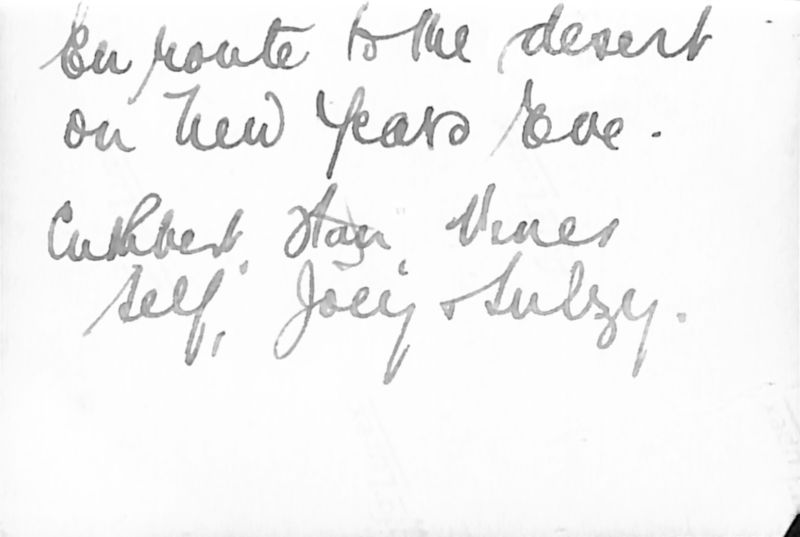 En route to the desert
on New Years Eve.
Cuthbert, Stan, Vines
self, Joey & Sulzy.